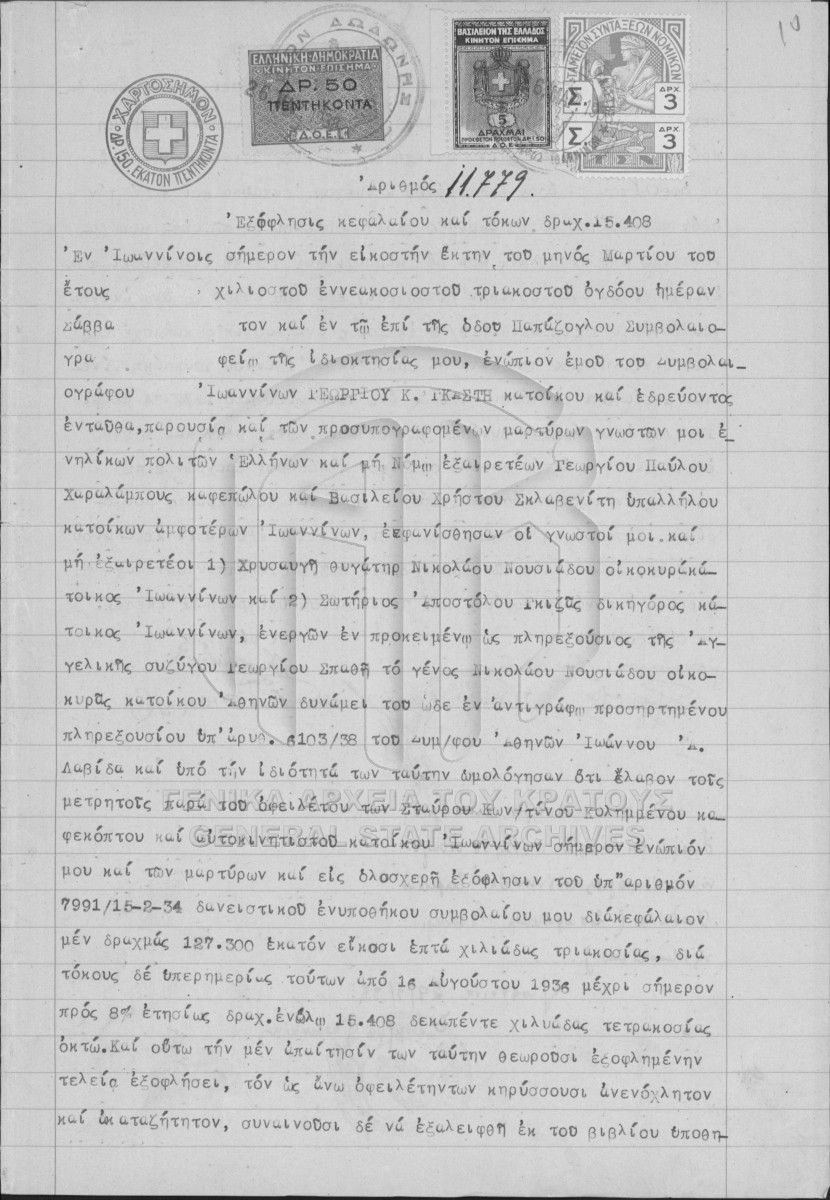 10
ΧΑΡΤΟΣΗΜΟΝ
ΔΡ.150.ΕΚΑΤΟΝ ΠΕΝΤΗΚΟΝΤΑ
ΕΛΛΗΝΙΚΗ·ΔΗΜΟΚΡΑΤΙΑ
ΚΙΝΗΤΟΝ·ΕΠΙΣΗΜΑ
ΔΡ.50
ΠΕΝΤΗΚΟΝΤΑ
Δ.Ο.Ε.Σ
ΒΑΣΙΛΕΙΟΝ ΤΗΣ ΕΛΛΑΔΟΣ
ΚΙΝΗΤΟΝ ΕΠΙΣΗΜΑ
5
ΔΡΑΧΜΑΙ
Δ.Ο.Κ
ΤΑΜΕΙΟΝ ΣΥΝΤΑΞΕΩΝ ΝΟΜΙΚΩΝ
Σ. ΔΡΧ 3
Σ. ΔΡΧ 3
Τ Σ Ν
Ἀριθμός 11.779.
Ἐξόφλησις κεφαλαίου καί τόκων δραχ.15.408
Ἐν Ἰωαννίνοις σήμερον τήν εἰκοστήν ἕκτην τοῦ μηνός Μαρτίου του
ἔτους χιλιοστοῦ ἐννεακοσιοστοῦ τριακοστοῦ ὀγδόου ἡμέραν
Σάββα τον καί ἐν τῷ ἐπί τῆς ὁδου Παπάζογλου Συμβολαιο-
γρα φείῳ τῆς ἰδιοκτησίας μου, ἐνώπιον ἐμοῦ του Συμβολαι-
ογράφου Ἰωαννίνων ΓΕΩΡΓΙΟΥ Κ. ΓΚΑΣΤΗ κατοίκου καί ἑδρεύοντος
ἐνταῦθα,παρουσίᾳ καί τῶν προσυπογραφομένων μαρτύρων γνωστῶν μοι ἐ-
νηλίκων πολιτῶν Ἑλλήνων καί μή Νόμῳ ἐξαιρετέων Γεωργίου Παύλου
Χαραλάμπους καφεπώλου καί Βασιλείου Χρήστου Σκλαβενίτη ὑπαλλήλου
κατοίκων ἀμφοτέρων Ἰωαννίνων, ἐεφανίσθησαν οἱ γνωστοί μοι καί
μή ἐξαιρετέοι 1) Χρυσαυγῆ θυγάτηρ Νικολάου Νουσιάδου οἰκοκυράκά-
τοικος Ἰωαννίνων καί 2) Σωτήριος Ἀποστόλου Γκιζᾶς δικηγόρος κά-
τοικος Ἰωαννίνων, ἐνεργῶν ἐν προκειμένῳ ὡς πληρεξούσιος τῆς Ἀγ-
γελικῆς συζύγου Γεωργίου Σπαθῆ τό γένος Νικολάου Νουσιάδου οἰκο-
κυρᾶς κατοίκου Ἀθηνῶν δυνάμει του ὧδε ἐν ἀντιγράφῳ προσηρτημένου
πληρεξουσίου ὑπ'ἀρυθ. 6103/38 του Συμ/φου Ἀθηνῶν Ἰωάννου Δ.
Λαβίδα καί ὑπό τήν ἰδιότητά των ταύτην ὡμολόγησαν ὅτι ἔλαβον τοῖς
μετρητοῖς παρά τοῦ ὀφειλέτου των Σταύρου Κων/τίνου Κολημμένου κα-
φεκόπτου καί αὐτοκινητιστοῦ κατοίκου Ἰωαννίνων σήμερον ἐνώπιόν
μου καί τῶν μαρτύρων καί εἰς ὁλοσχερῆ ἐξόφλησιν τοῦ ὑπ"αριθμόν
7991/15-2-34 δανειστικοῦ ἐνυποθήκου συμβολαίου μου διάκεφάλαιον
μέν δραχμάς 127.300 ἑκατόν εἴκοσι ἑπτά χιλιάδας τριακοσίας, διά
τόκους δέ ὑπερημερίας τούτων ἀπό 16 Αὐγούστου 1936 μέχρι σήμερον
πρός 8% ἐτησίως δραχ.ἐνὅλῳ 15.408 δεκαπέντε χιλυάδας τετρακοσίας
ὀκτώ.Καί οὕτω τήν μέν ἀπαίτησίν των ταύτην θεωροῦσι ἐξοφλημένην
τελείᾳ ἐξοφλήσει, τόν ὡς ἄνω ὀφειλέτηντων κηρύσσουσι ἀνενόχλητον
καί ἀκαταζήτητον, συναινοῦσι δέ νά ἐξαλειφθῆ ἐκ τοῦ βιβλίου ὑποθη-
ΓΕΝΙΚΑ ΑΡΧΕΙΑ ΤΟΥ ΚΡΑΤΟΥΣ
GENERAL STATE ARCHIVES